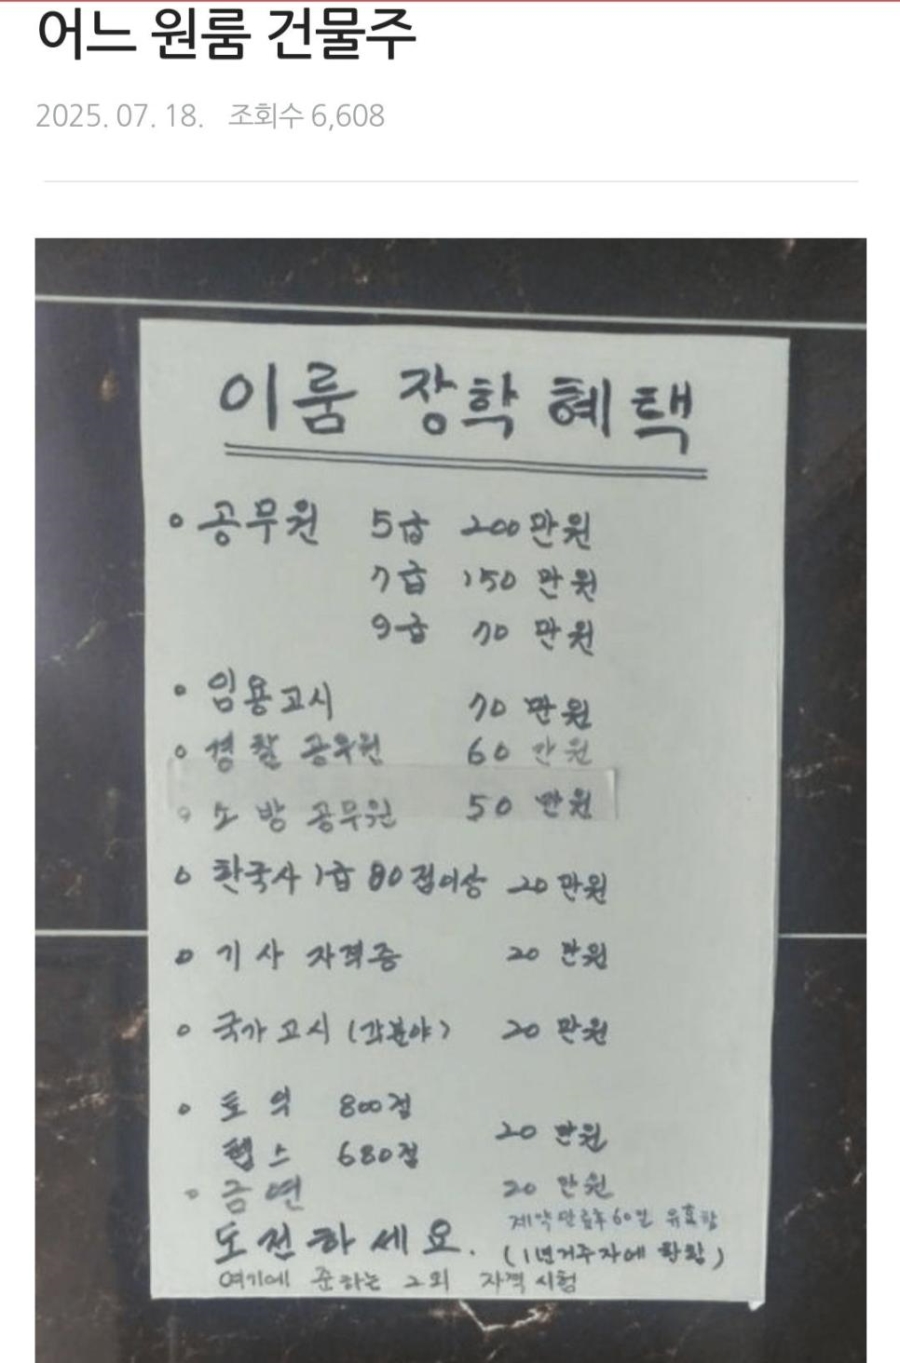 어느 원룸 건물주
2025. 07. 18. 조회수 6,608
이룸 장학 혜택
공무원 5급 200만원
7급 150만원
9급 70만원
임용고시 70만원
경찰공무원 60만원
소방공무원 50만원
한국사 1급 80점이상 20만원
기사 자격증 20만원
국가고시 (각분야) 20만원
토익 800점
텝스 680점 20만원
금연 20만원
계약만료후 60일 유효함
도전하세요. (1년거주자에 한함)
여기에 준하는 그외 자격시험